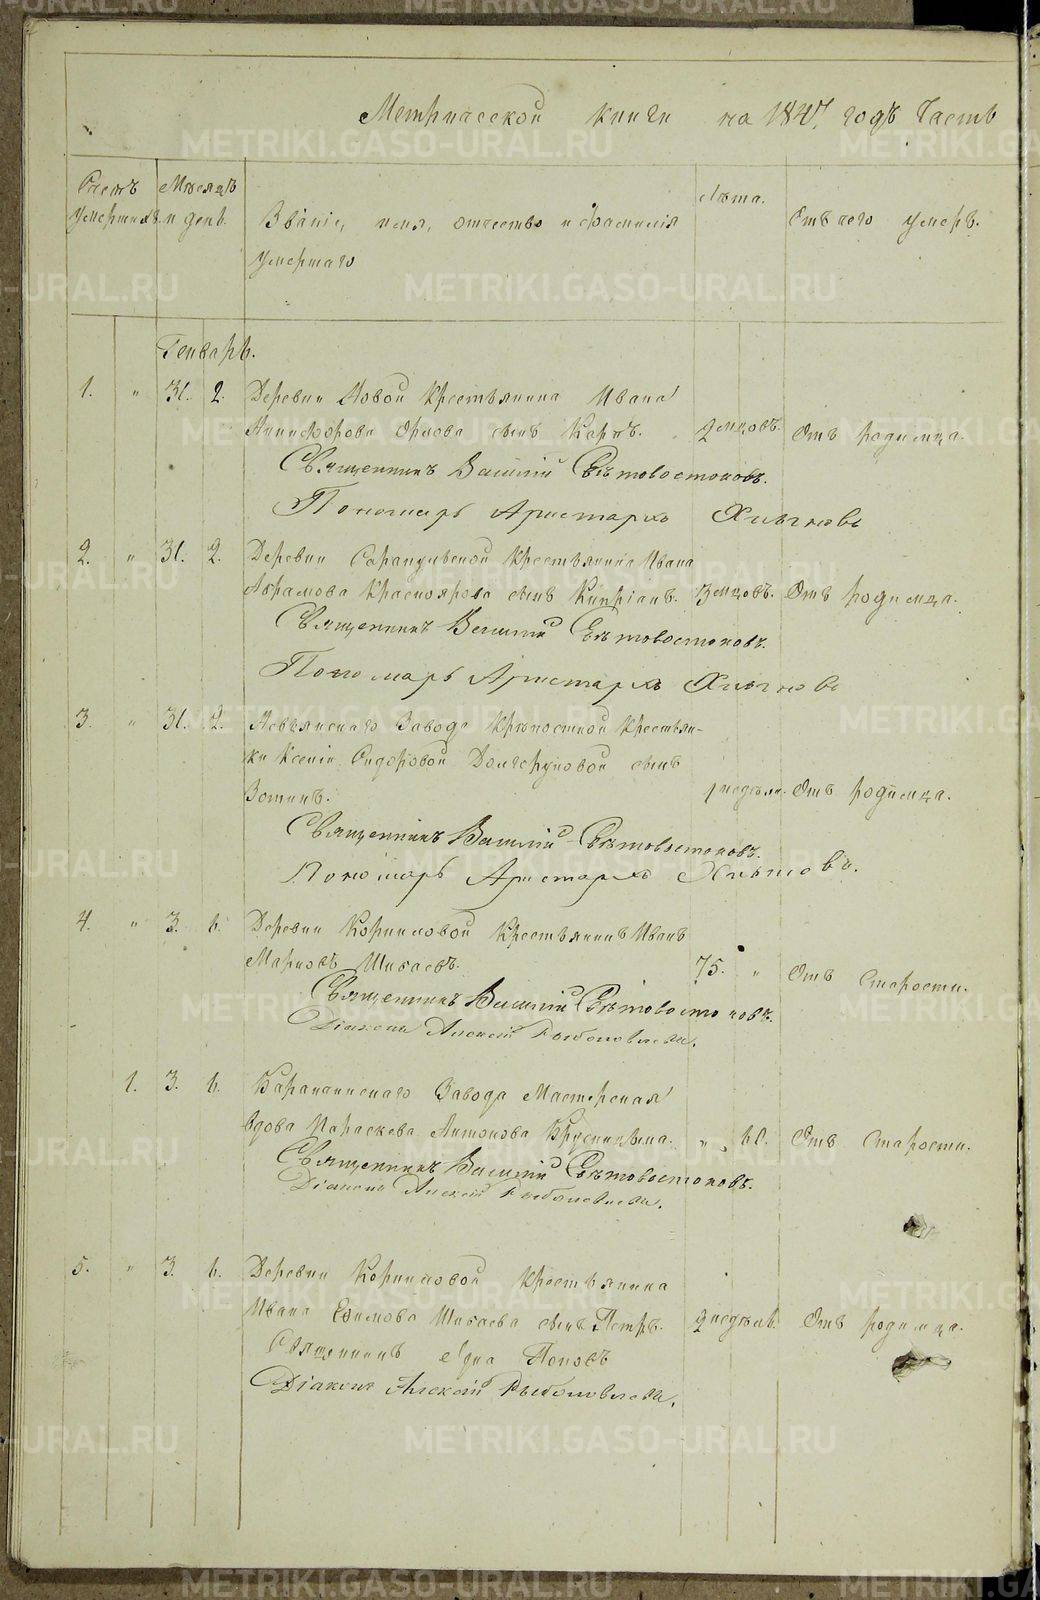 Метрической книги на 1847 годъ Часть
Счетъ умершихъ.
Мѣсяцъ и день.
Званіе, имя, отчество и фамилія умершаго
Лѣта.
Отъ чего умеръ.
Генварь.
1. " 31. 2. Деревни Новой Крестьянина Ивана
Никифорова Орлова сынъ Карпъ. 2 мцовъ. Отъ родимца.
Священникъ Василій Свѣтовостоковъ.
Пономарь Аристархъ Хлыновъ
2. " 31. 2. Деревни Сарапульской Крестьянина Ивана
Абрамова Красноярова сынъ Кипріанъ. 3 мцовъ. Отъ родимца.
Священникъ Василій Свѣтовостоковъ.
Пономарь Аристархъ Хлыновъ
3. " 31. 2. Невьянскаго Завода Крѣпостной Крестьян-
ки Ксеніи Сидоровой Долгоруковой сынъ
Зотикъ. 1 недѣли. Отъ родимца.
Священникъ Василій Свѣтовостоковъ.
Пономарь Аристархъ Хлыновъ.
4. " 3. 6. Деревни Корниловой Крестьянинъ Иванъ
Марковъ Шибаевъ. 75. " Отъ старости.
Священникъ Василій Свѣтовостоковъ.
Діаконъ Алексій
1. 3. 6. Баранчинскаго Завода Мастерская
вдова Параскева Антонова 60. Отъ старости.
Священникъ Василій Свѣтовостоковъ.
Діаконъ Алексій
5. " 3. 6. Деревни Корниловой Крестьянина
Ивана Ефимова Шибаева сынъ Петръ. 2 недѣль. Отъ родимца.
Священникъ Поповъ
Діаконъ Алексій
METRIKI.GASO-URAL.RU